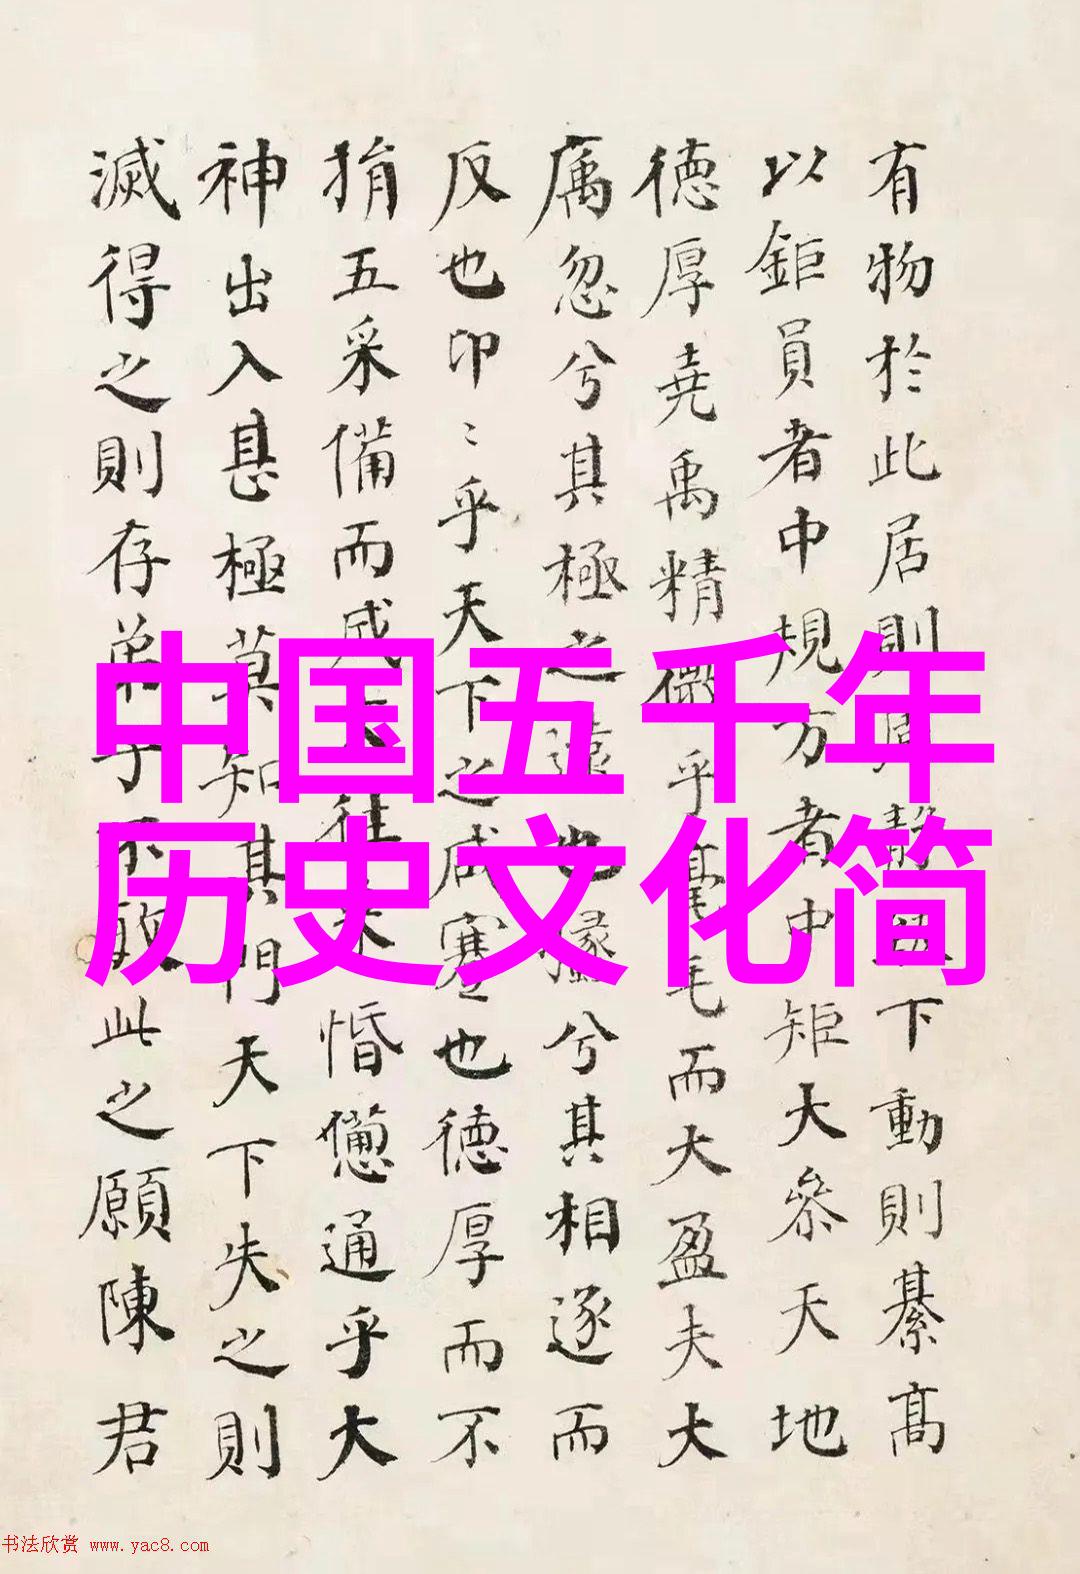 有物於此居則周靜致下動則綦高
以鉅員者中規方者中矩大參天地
德厚堯禹精微乎毫毛而大盈夫大
厲忽兮其極之遠也攭兮其相逐而
反也卬〻乎天下之咸蹇也德厚而不
捐五采備而成往來惛憊通乎大
神出入甚極莫知其門天下失之則
滅得之則存弟子不敏此之願陳君
中国五千年
历史文化简
书法欣赏 www.yac8.com